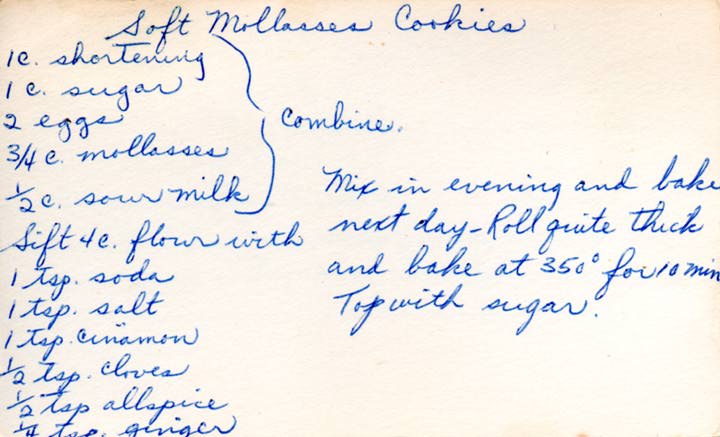 Soft Mollasses Cookies
1c. shortening
1 c. sugar
2 eggs
3/4 c. mollasses
1/2 c. sour milk
Combine.
Sift 4c. flour with
1 tsp. soda
1 tsp. salt
1 tsp. cinnamon
1/2 tsp. cloves
1/2 tsp allspice
1/4 tsp. ginger
Mix in evening and bake
next day - Roll quite thick
and bake at 350° for 10 min
Top with sugar.